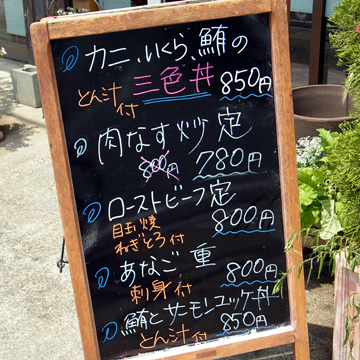 カニ、いくら、鮪の
とん汁付 三色丼 850円
肉なす炒定
800円 780円
ローストビーフ定
目玉焼
ねぎとろ付 800円
あなご重
刺身付 800円
鮪とサーモンユッケ丼
とん汁付 850円